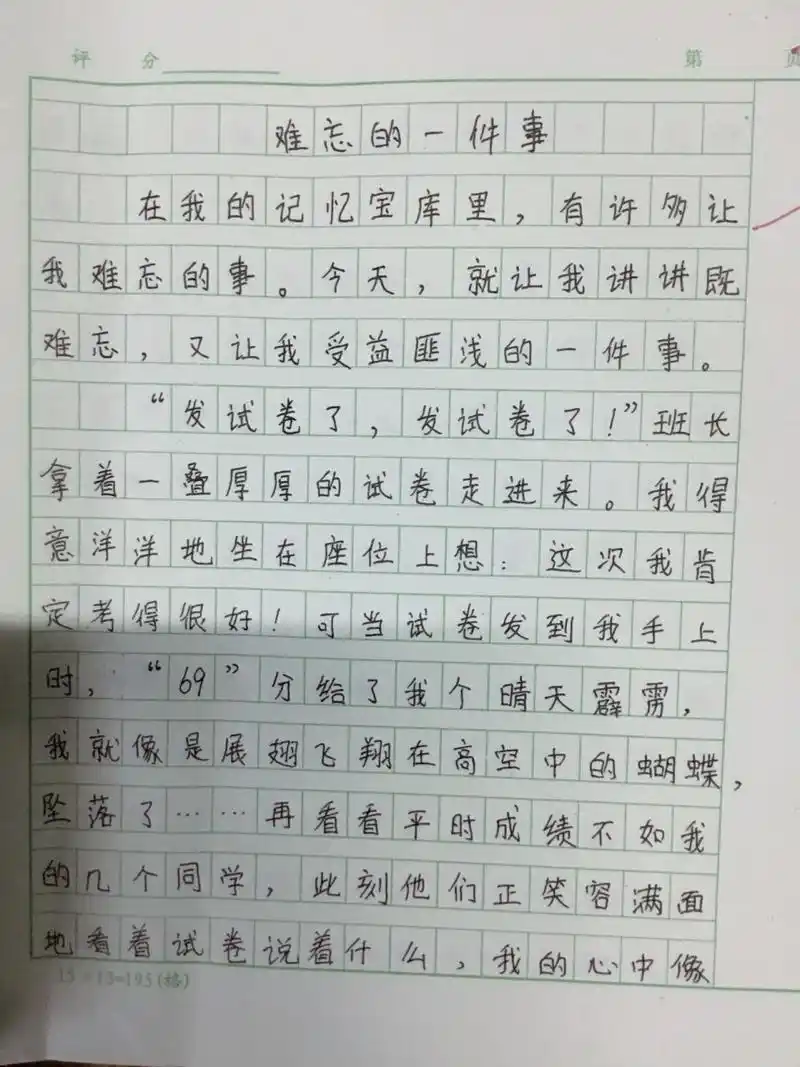 评 分
第 页
难忘的一件事
在我的记忆宝库里，有许多让
我难忘的事。今天，就让我讲讲既
难忘，又让我受益匪浅的一件事。
“发试卷了，发试卷了！”班长
拿着一叠厚厚的试卷走进来。我得
意洋洋地坐在座位上想：这次我肯
定考得很好！可当试卷发到我手上
时，“69”分给了我个晴天霹雳，
我就像是展翅飞翔在高空中的蝴蝶，
坠落了……再看看平时成绩不如我
的几个同学，此刻他们正笑容满面
地看着试卷说着什么，我的心中像
15×13=195(格)